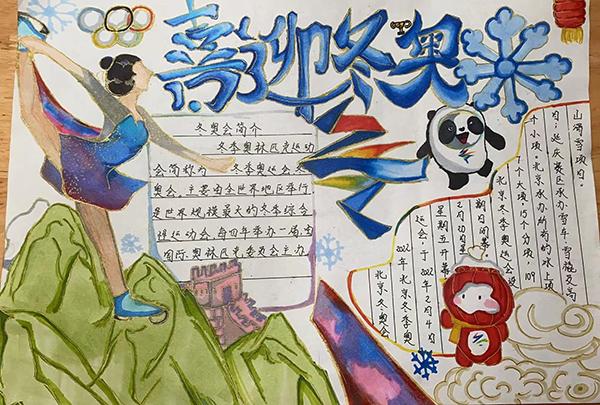 喜迎冬奥
冬奥会简介
冬季奥林匹克运动
会简称为 冬季奥运会、冬
奥会,主要由全世界地区举行
是世界规模最大的冬季综合
性运动会,每四年举办一届,由
国际奥林匹克委员会主办
北京冬奥会
2022年北京冬季奥
运会,于2022年2月4日
星期五开幕
2月20日
期日闭幕
北京冬季奥运会设
7个大项,15个分项,109
个小项。北京承办所有的冰上项
目;延庆赛区承办雪车、雪橇及高
山滑雪项目。